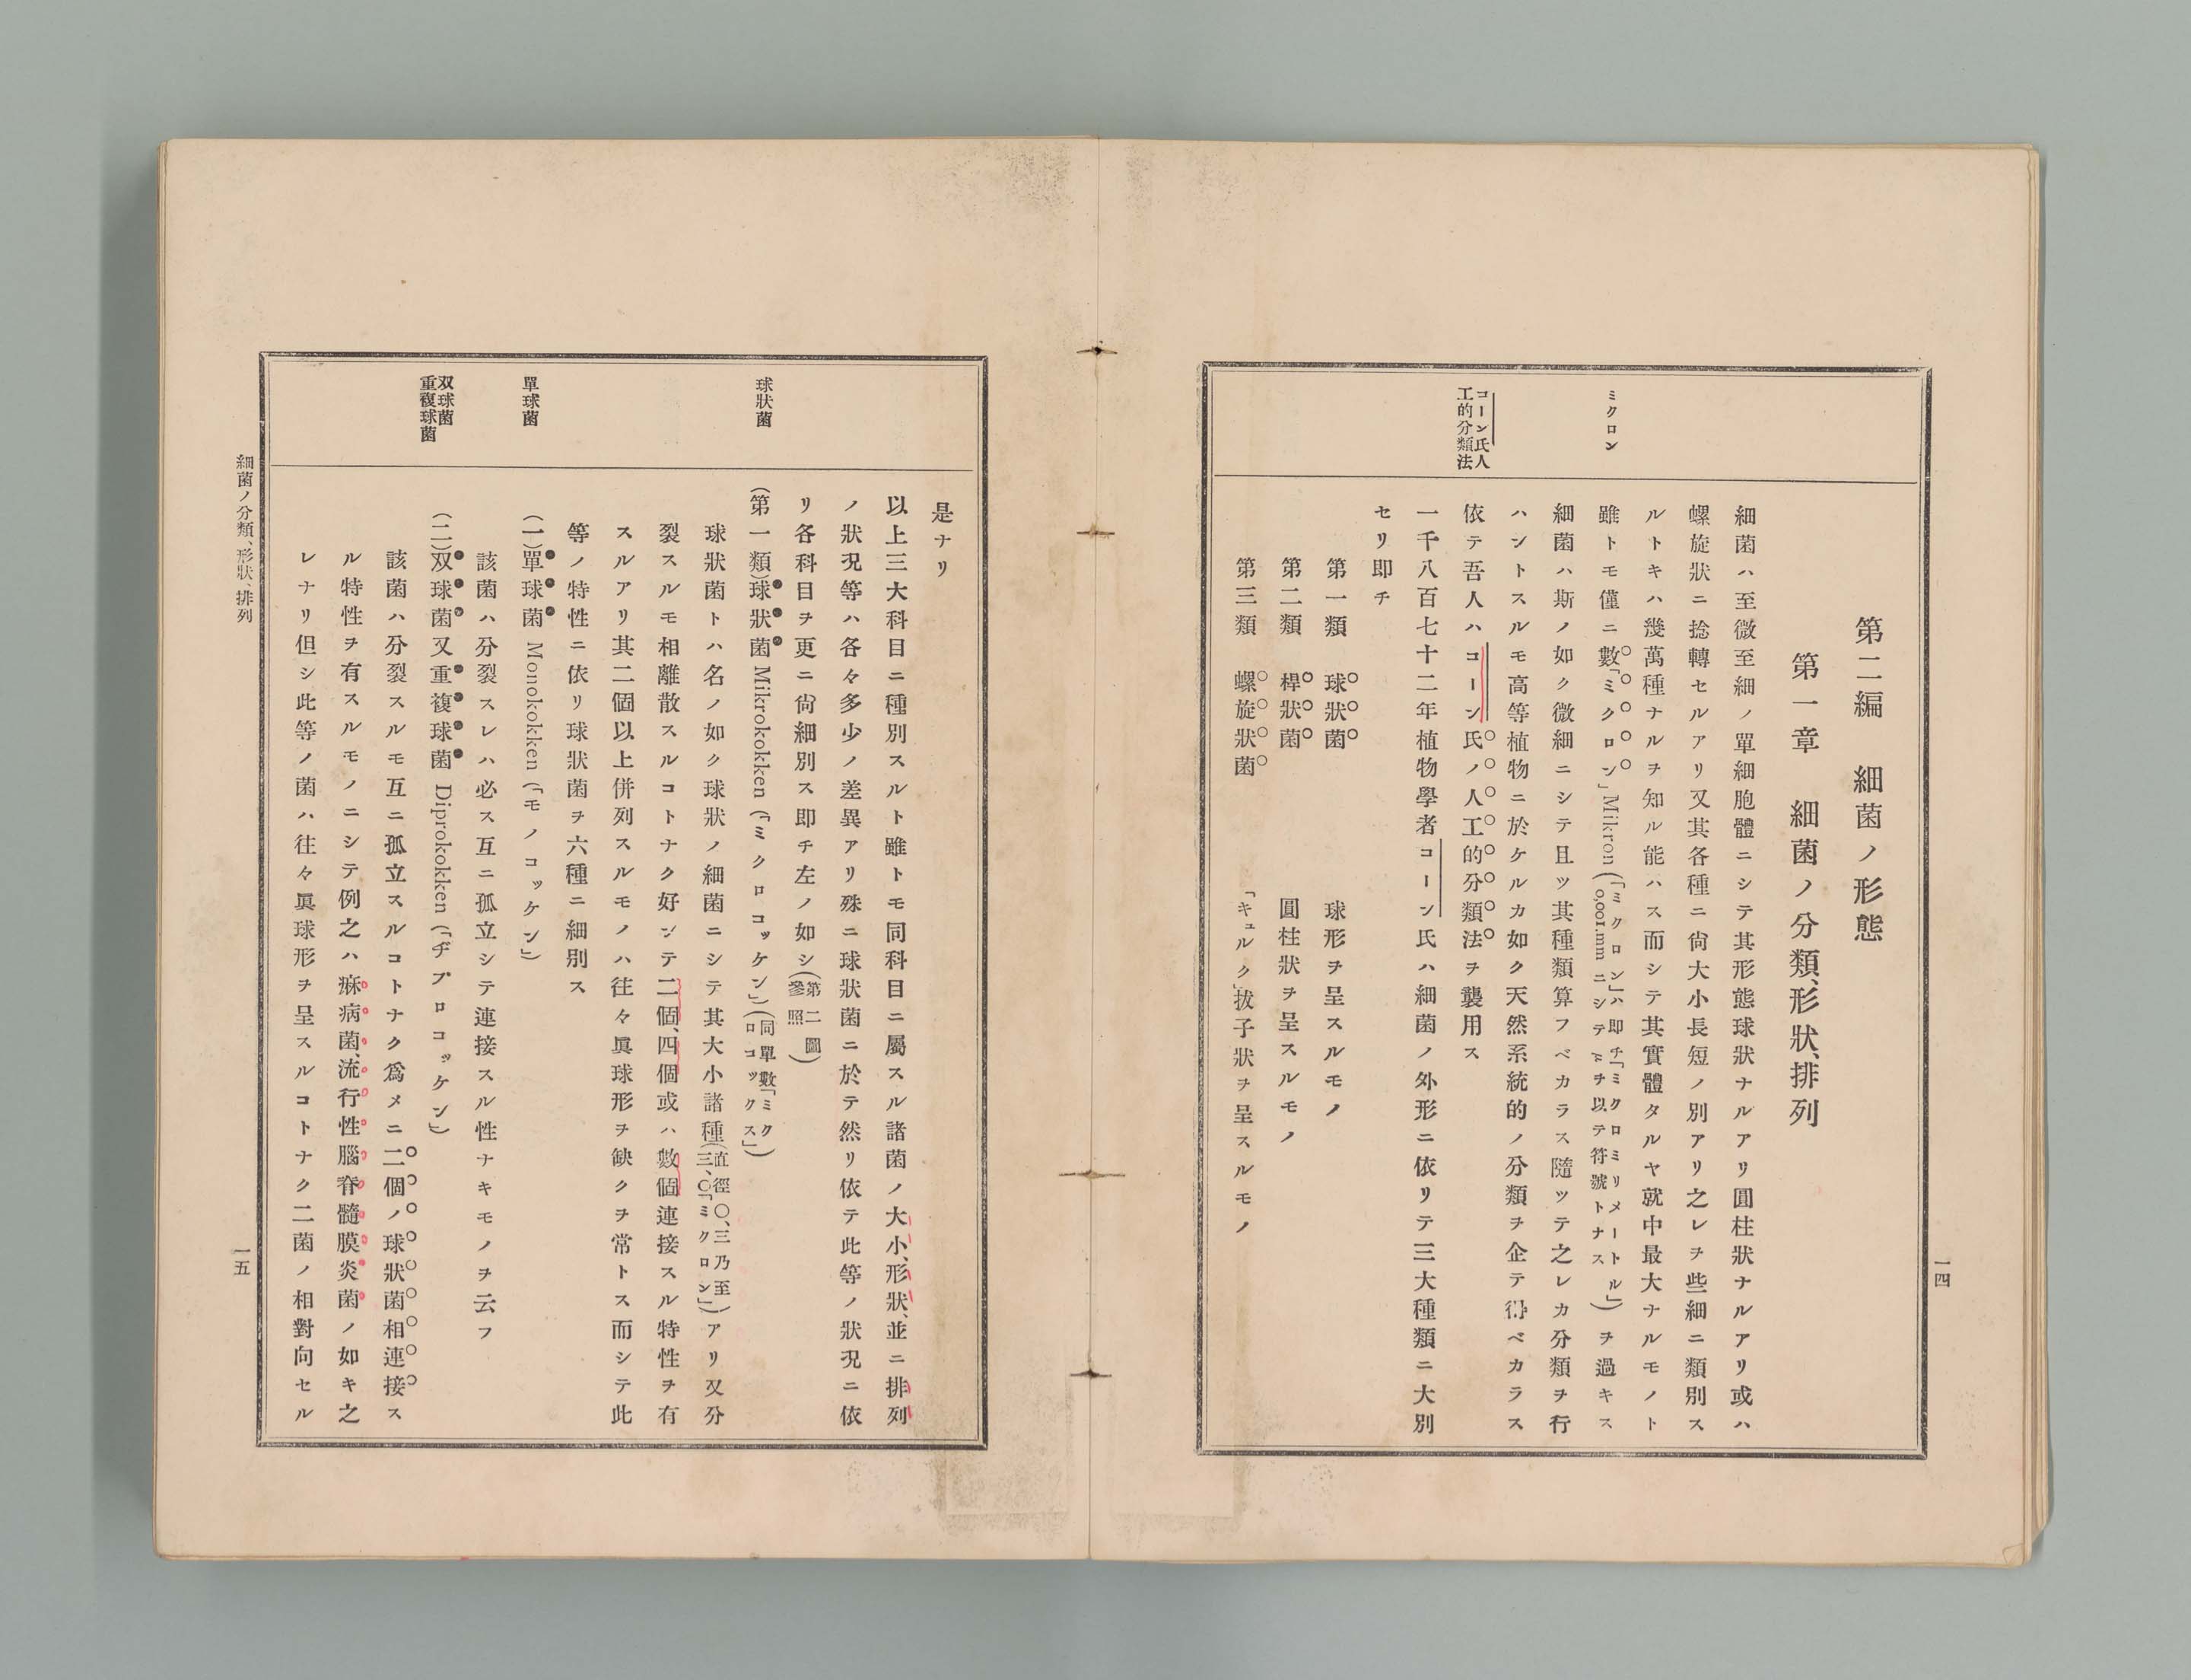 一四
ミクロン
コーン氏人
工的分類法
第二編　細菌ノ形態
第一章　細菌ノ分類、形狀、排列
細菌ハ至微至細ノ單細胞體ニシテ其形態球狀ナルアリ圓柱狀ナルアリ或ハ
螺旋狀ニ捻轉セルアリ又其各種ニ尙大小長短ノ別アリ之レヲ些細ニ類別ス
ルトキハ幾萬種ナルヲ知ル能ハス而シテ其實體タルヤ就中最大ナルモノト
雖トモ僅ニ數「ミクロン」Mikron(「ミクロン」ハ卽チ「ミクロミリメートル」0,001.mmニシテμヲ以テ符號トナス)ヲ過キス
細菌ハ斯ノ如ク微細ニシテ且ツ其種類算フベカラス隨ツテ之レカ分類ヲ行
ハントスルモ高等植物ニ於ケルカ如ク天然系統的ノ分類ヲ企テ得ベカラス
依テ吾人ハコーン氏ノ人工的分類法ヲ襲用ス
一千八百七十二年植物學者コーン氏ハ細菌ノ外形ニ依リテ三大種類ニ大別
セリ卽チ
第一類　球狀菌　球形ヲ呈スルモノ
第二類　桿狀菌　圓柱狀ヲ呈スルモノ
第三類　螺旋狀菌　「キュルク」拔子狀ヲ呈スルモノ
球狀菌
單球菌
双球菌
重複球菌
是ナリ
以上三大科目ニ種別スルト雖トモ同科目ニ屬スル諸菌ノ大小、形狀、並ニ排列
ノ狀況等ハ各々多少ノ差異アリ殊ニ球狀菌ニ於テ然リ依テ此等ノ狀況ニ依
リ各科目ヲ更ニ尙細別ス卽チ左ノ如シ(第二圖參照)
(第一類)球狀菌 Mikrokokken (「ミクロコッケン」)(同單數「ミクロコックス」)
球狀菌トハ名ノ如ク球狀ノ細菌ニシテ其大小諸種(直徑〇、三乃至三、〇「ミクロン」)アリ又分
裂スルモ相離散スルコトナク好ンテ二個、四個或ハ數個連接スル特性ヲ有
スルアリ其二個以上併列スルモノハ往々眞球形ヲ缺クヲ常トス而シテ此
等ノ特性ニ依リ球狀菌ヲ六種ニ細別ス
(一)單球菌 Monokokken (「モノコッケン」)
該菌ハ分裂スレハ必ス互ニ孤立シテ連接スル性ナキモノヲ云フ
(二)双球菌又重複球菌 Diprokokken (「ヂプロコッケン」)
該菌ハ分裂スルモ互ニ孤立スルコトナク爲メニ二個ノ球狀菌相連接ス
ル特性ヲ有スルモノニシテ例之ハ痳病菌、流行性腦脊髓膜炎菌ノ如キ之
レナリ但シ此等ノ菌ハ往々眞球形ヲ呈スルコトナク二菌ノ相對向セル
細菌ノ分類、形狀、排列
一五